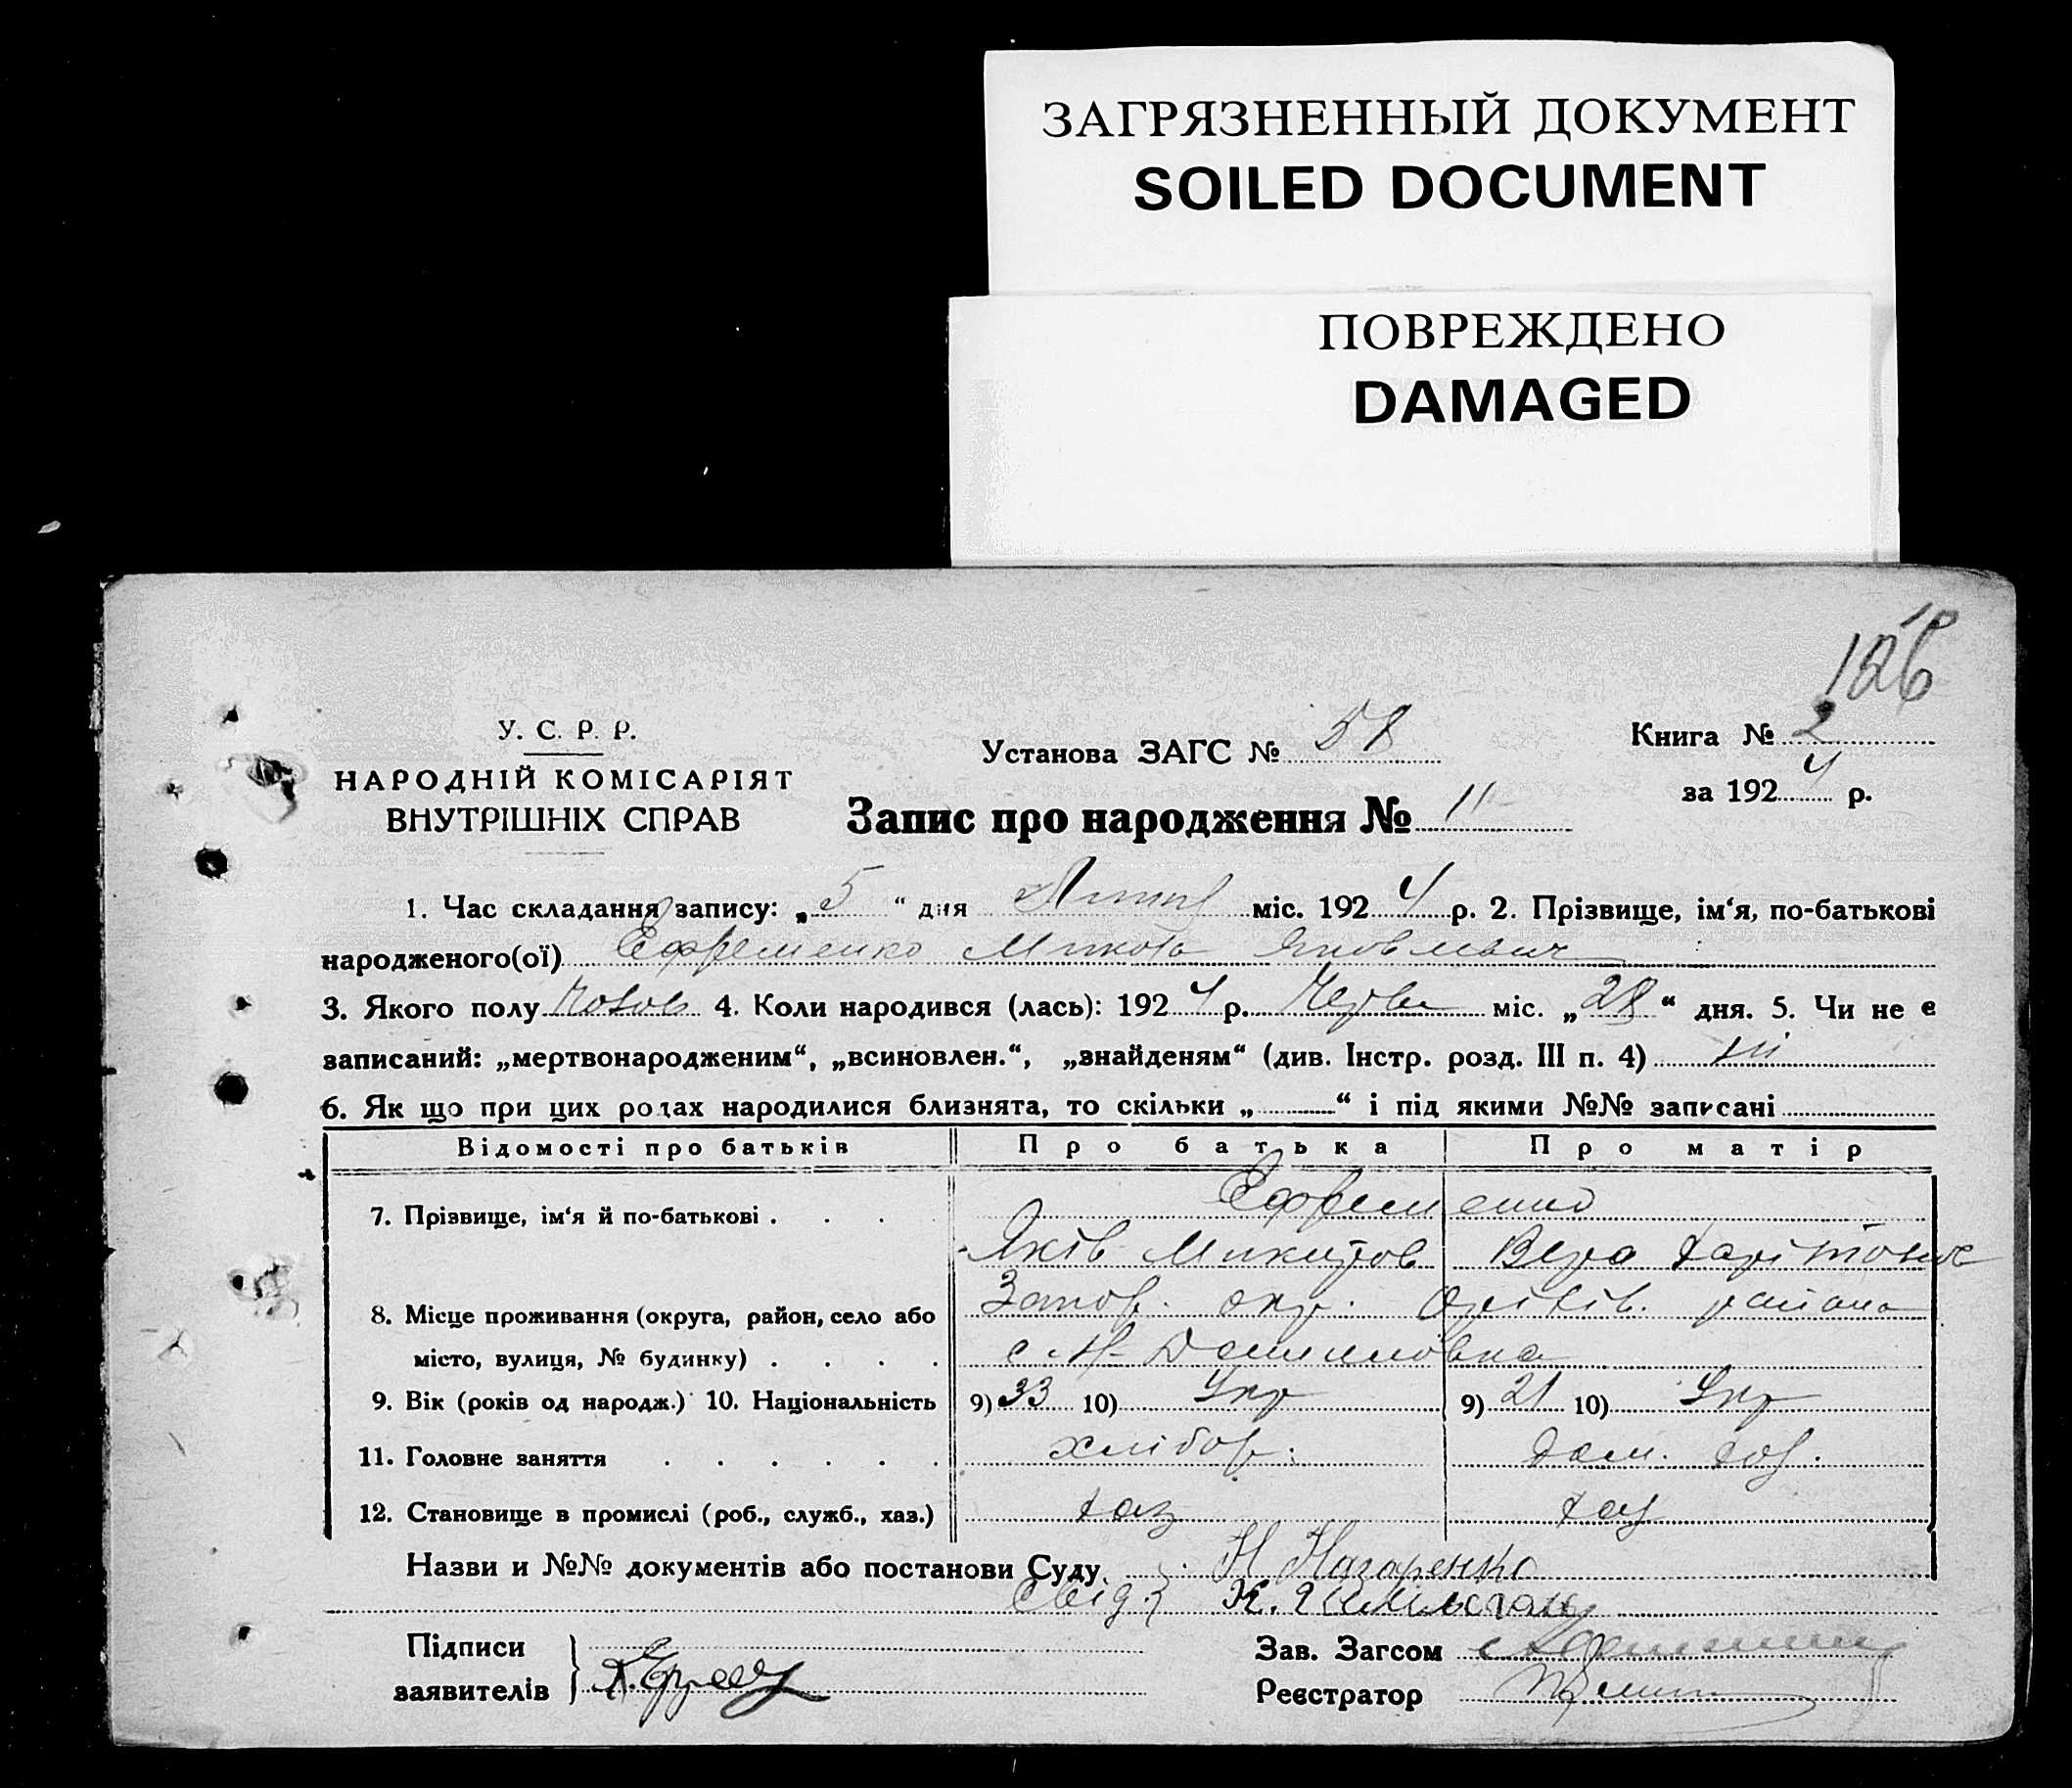 ЗАГРЯЗНЕННЫЙ ДОКУМЕНТ
SOILED DOCUMENT
ПОВРЕЖДЕНО
DAMAGED
126
У. С. Р. Р.
НАРОДНІЙ КОМІСАРІЯТ
ВНУТРІШНІХ СПРАВ
Установа ЗАГС № 58
Книга № 2
за 1924 р.
Запис про народження № 11
1. Час складання запису: „5“ дня Липня міс. 1924 р. 2. Прізвище, ім‘я, по-батькові
народженого(ої) Ефременко Микола Яковлевич
3. Якого полу Чолов 4. Коли народився (лась): 1924 р. Червн міс. „28“ дня. 5. Чи не є
записаний: „мертвонародженим“, „всиновлен.“, „знайденям“ (див. Інстр. розд. III п. 4) ні
6. Як що при цих родах народилися близнята, то скільки „ “ і під якими №№ записані
Відомості про батьків Про батька Про матір
7. Прізвище, ім‘я й по-батькові . . . . Ефременко
Яків Микитов Вера Харітонов
8. Місце проживання (округа, район, село або Запор. окр. Оріхів. района
місто, вулиця, № будинку) . . . . с. Н-Даниловка
9. Вік (років од народж.) 10. Національність 9) 33 10) Укр 9) 21 10) Укр
11. Головне заняття . . . . . . хлібор. дом. хоз.
12. Становище в промислі (роб., служб., хаз.) хаз хаз
Назви и №№ документів або постанови Суду Н Назаренко
Свід. К.
Підписи
заявителів
Зав. Загсом
Реєстратор